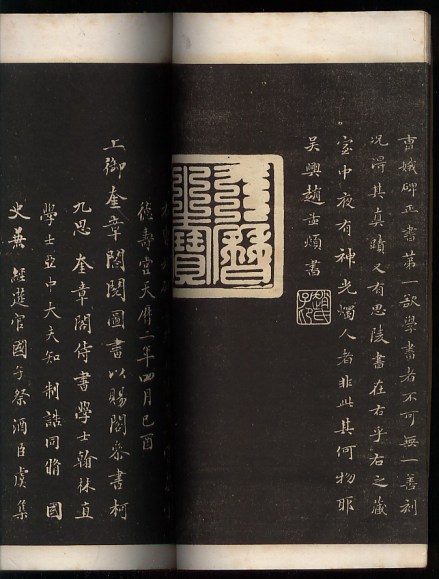 曹娥碑正書第一欲學書者不可無一善刻
況得其真蹟又有思陵書在右乎右之藏
室中夜有神光燭人者非此其何物耶
吳興趙孟頫書
趙氏子昂
天曆之寶
德壽宮天曆二年四月己酉
上御奎章閣閱圖書以賜閣參書柯
九思 奎章閣侍書學士翰林直
學士亞中大夫知制誥同脩 國
史兼 經筵官國子祭酒臣虞集